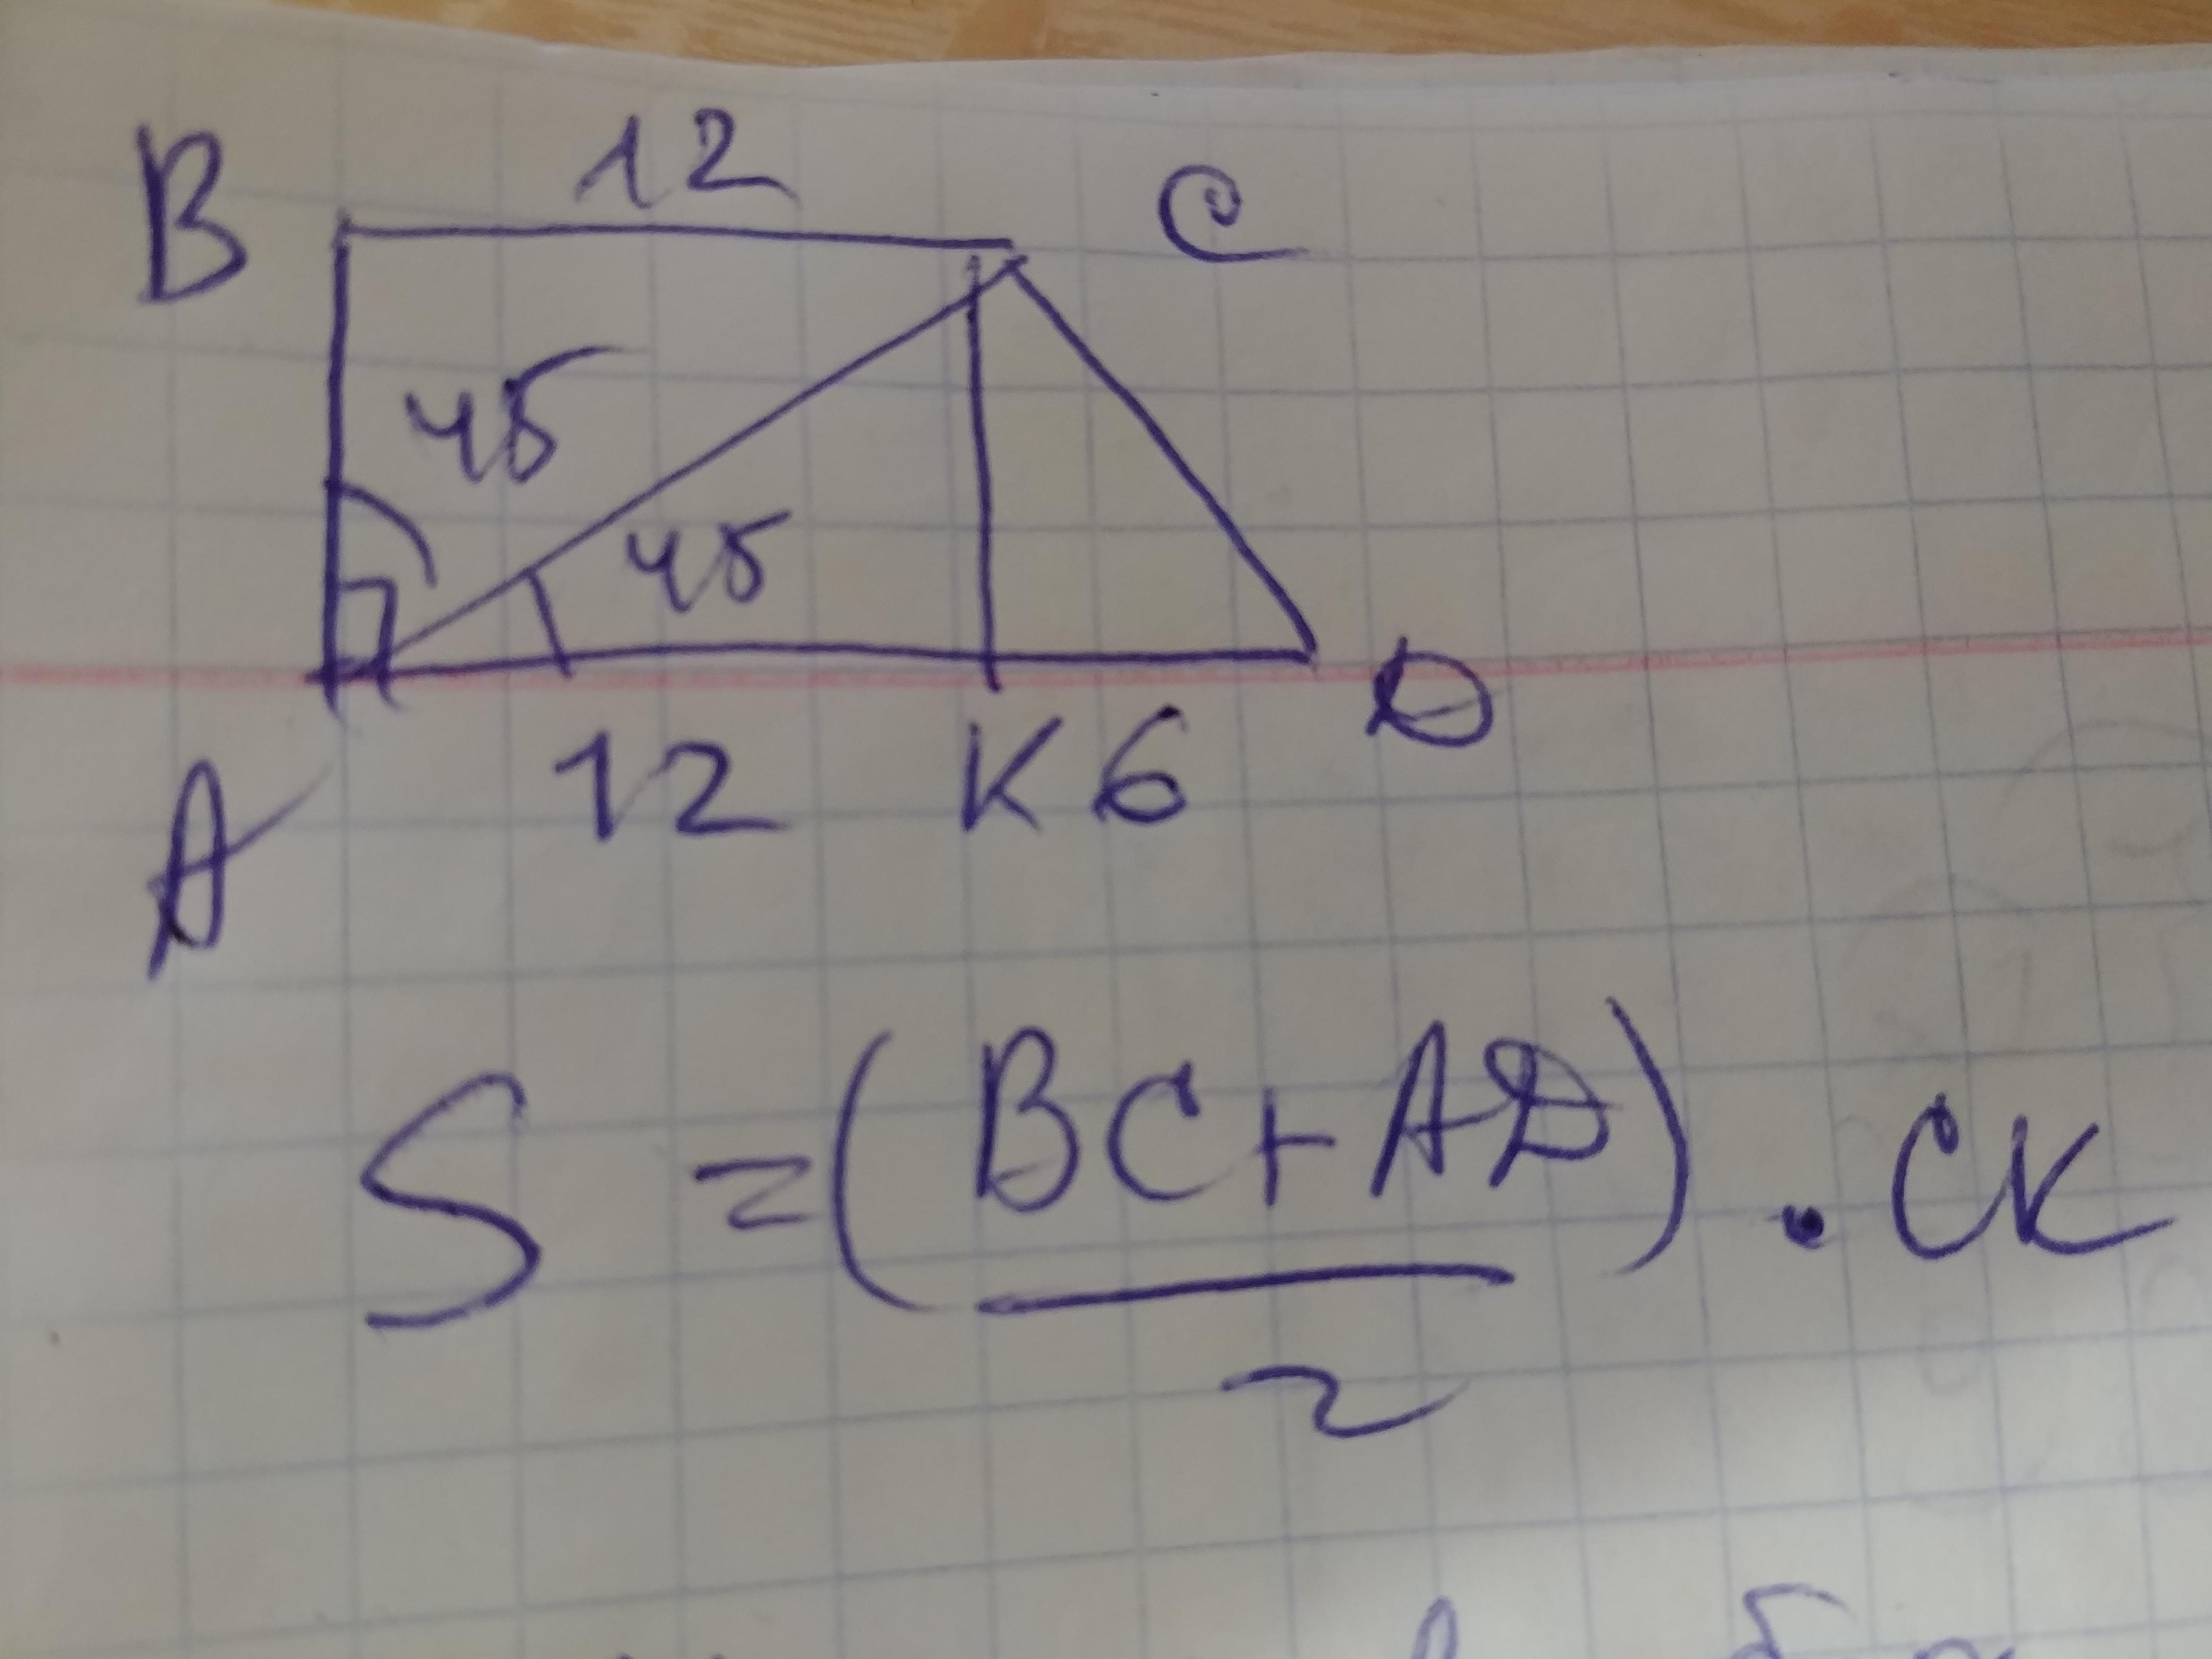 B 12 C
45
45
D
A 12 K 6
S = (BC+AD)/2 · CK